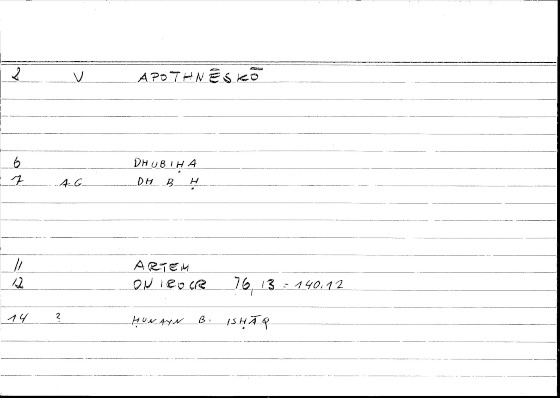 2 V APOTHNĒSKŌ
6 DHUBIḤA
7 AG DH B Ḥ
11 ARTEM
12 ONIROCR 76,13 = 140.12
14 ? ḤUNAYN B. ISḤĀQ